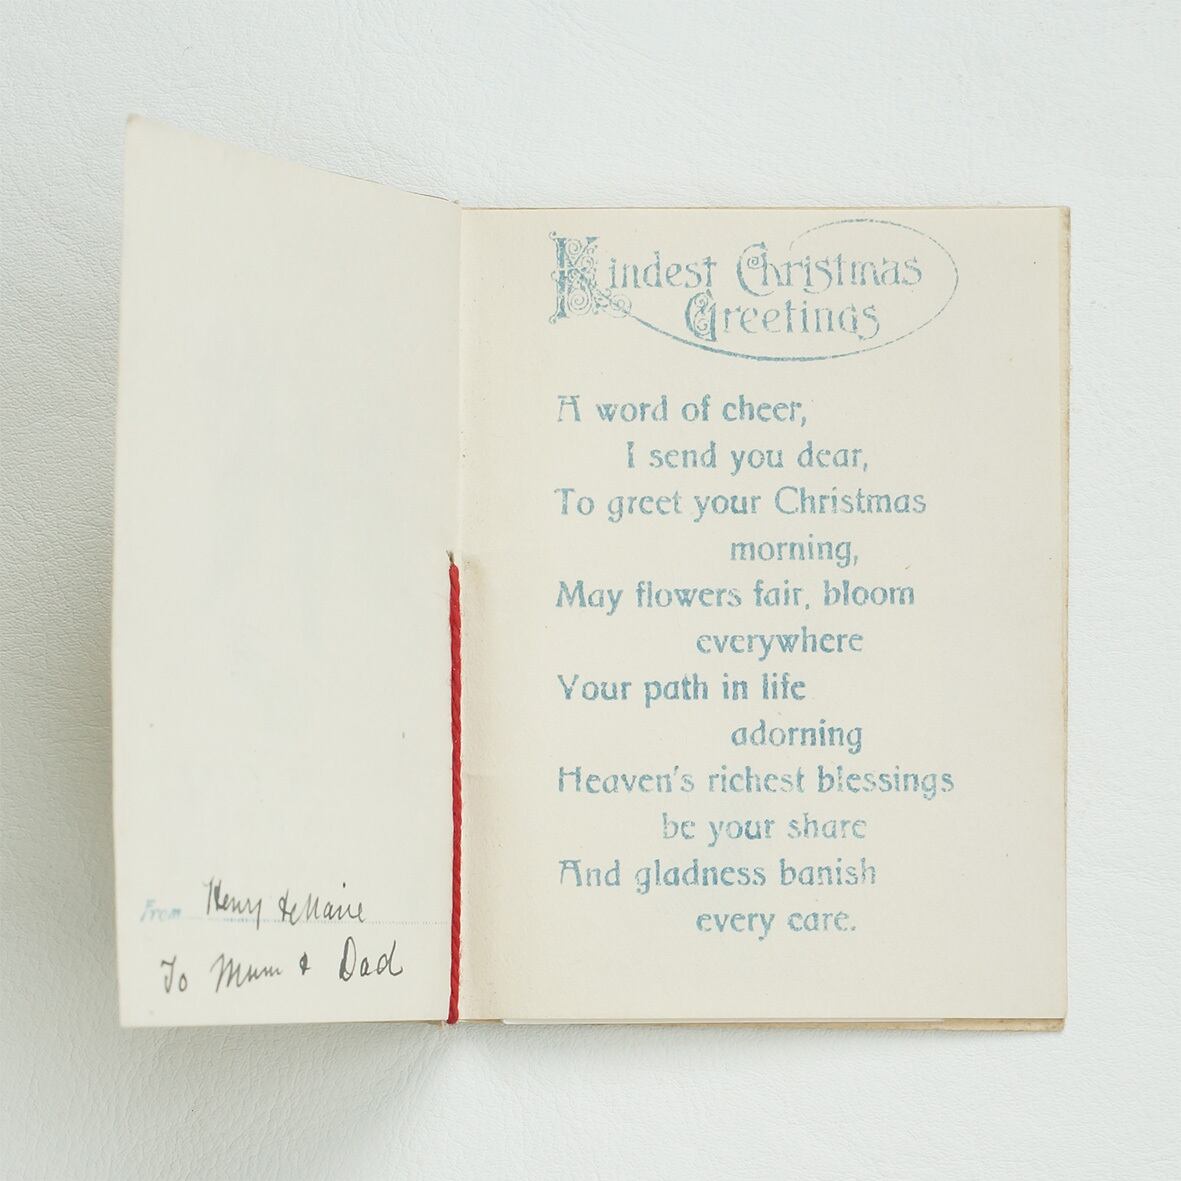 From Henry & Marie
To Mum & Dad
Kindest Christmas
Greetings
A word of cheer,
I send you dear,
To greet your Christmas
morning,
May flowers fair, bloom
everywhere
Your path in life
adorning
Heaven's richest blessings
be your share
And gladness banish
every care.